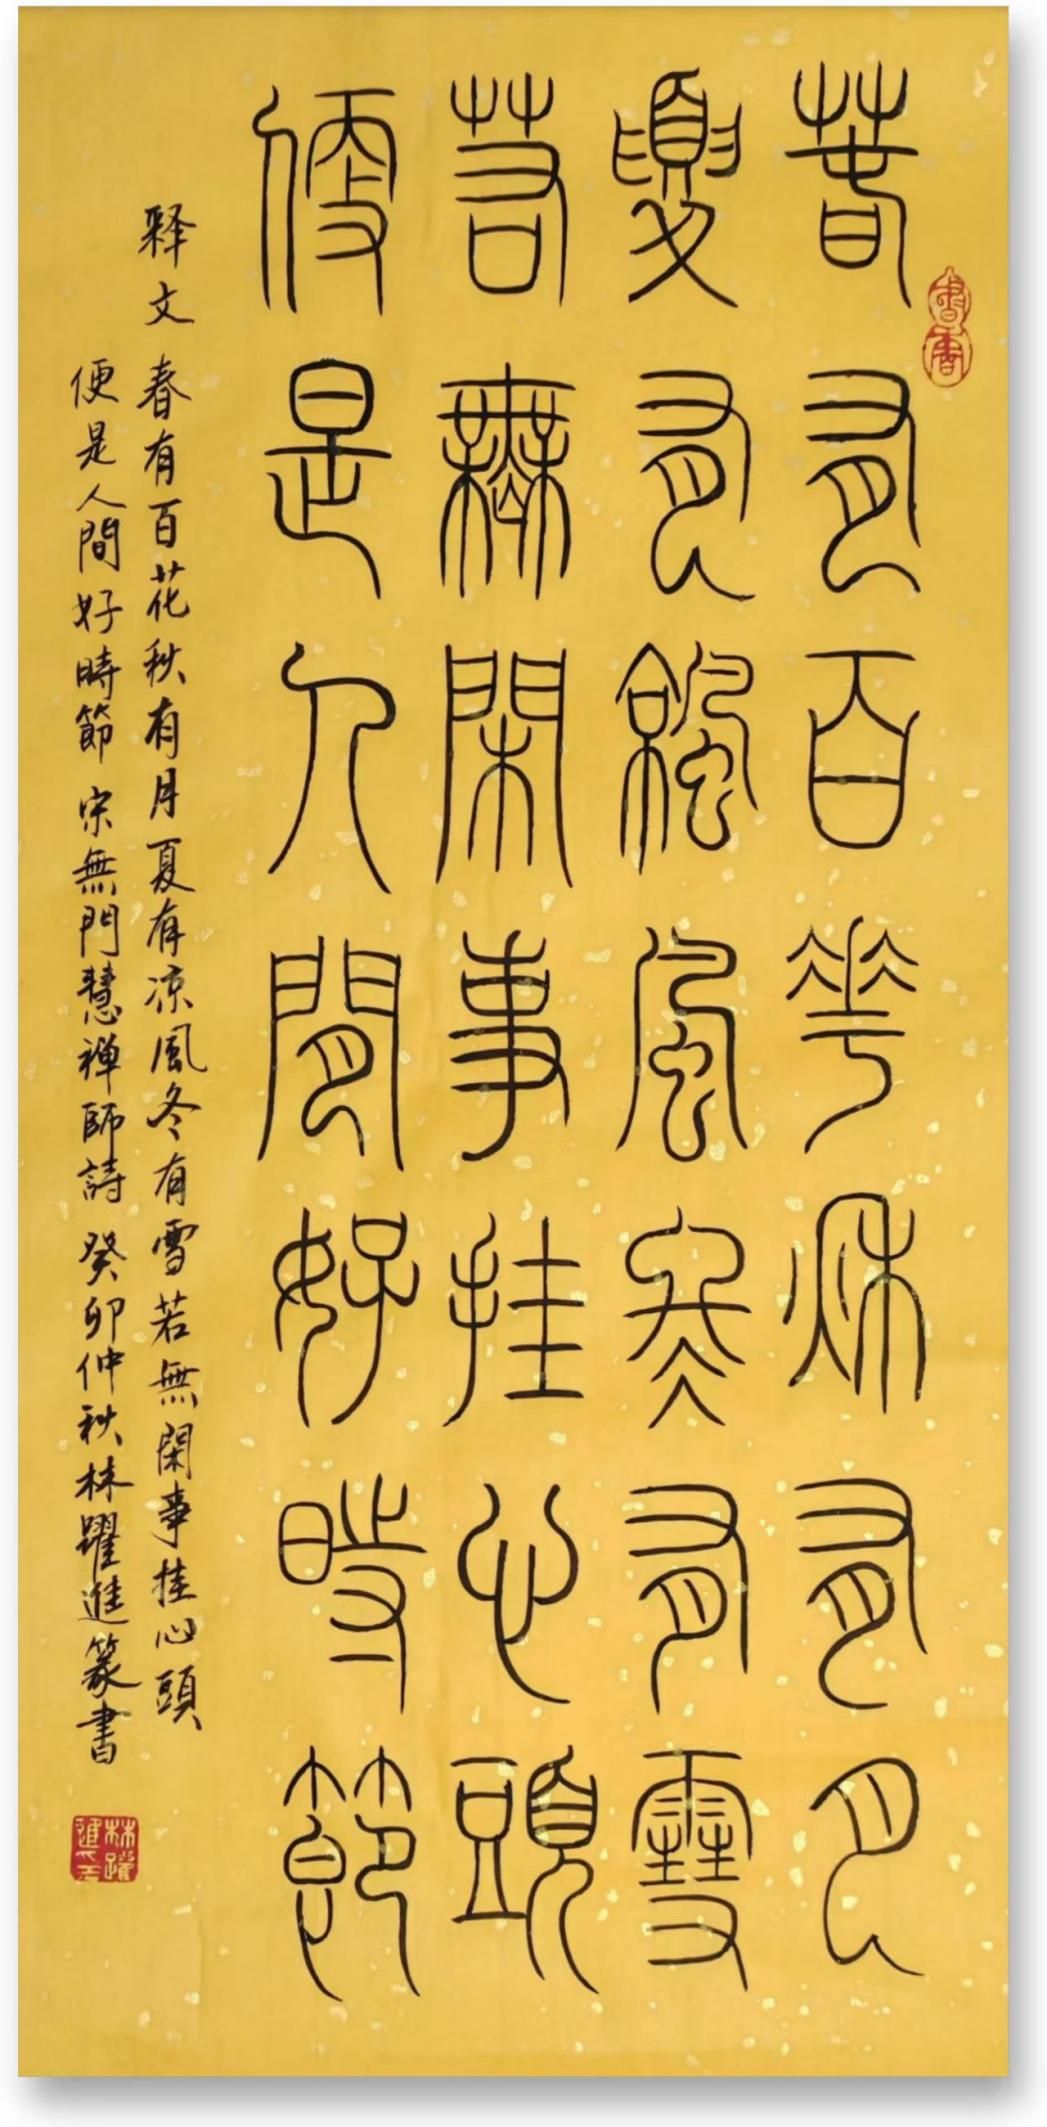 春有百花秋有月
夏有涼風冬有雪
若無閑事挂心頭
便是人間好時節
释文 春有百花秋有月夏有凉風冬有雪若無閑事挂心頭
便是人間好時節 宋無門慧禅師詩 癸卯仲秋林躍進篆書
林躍進印